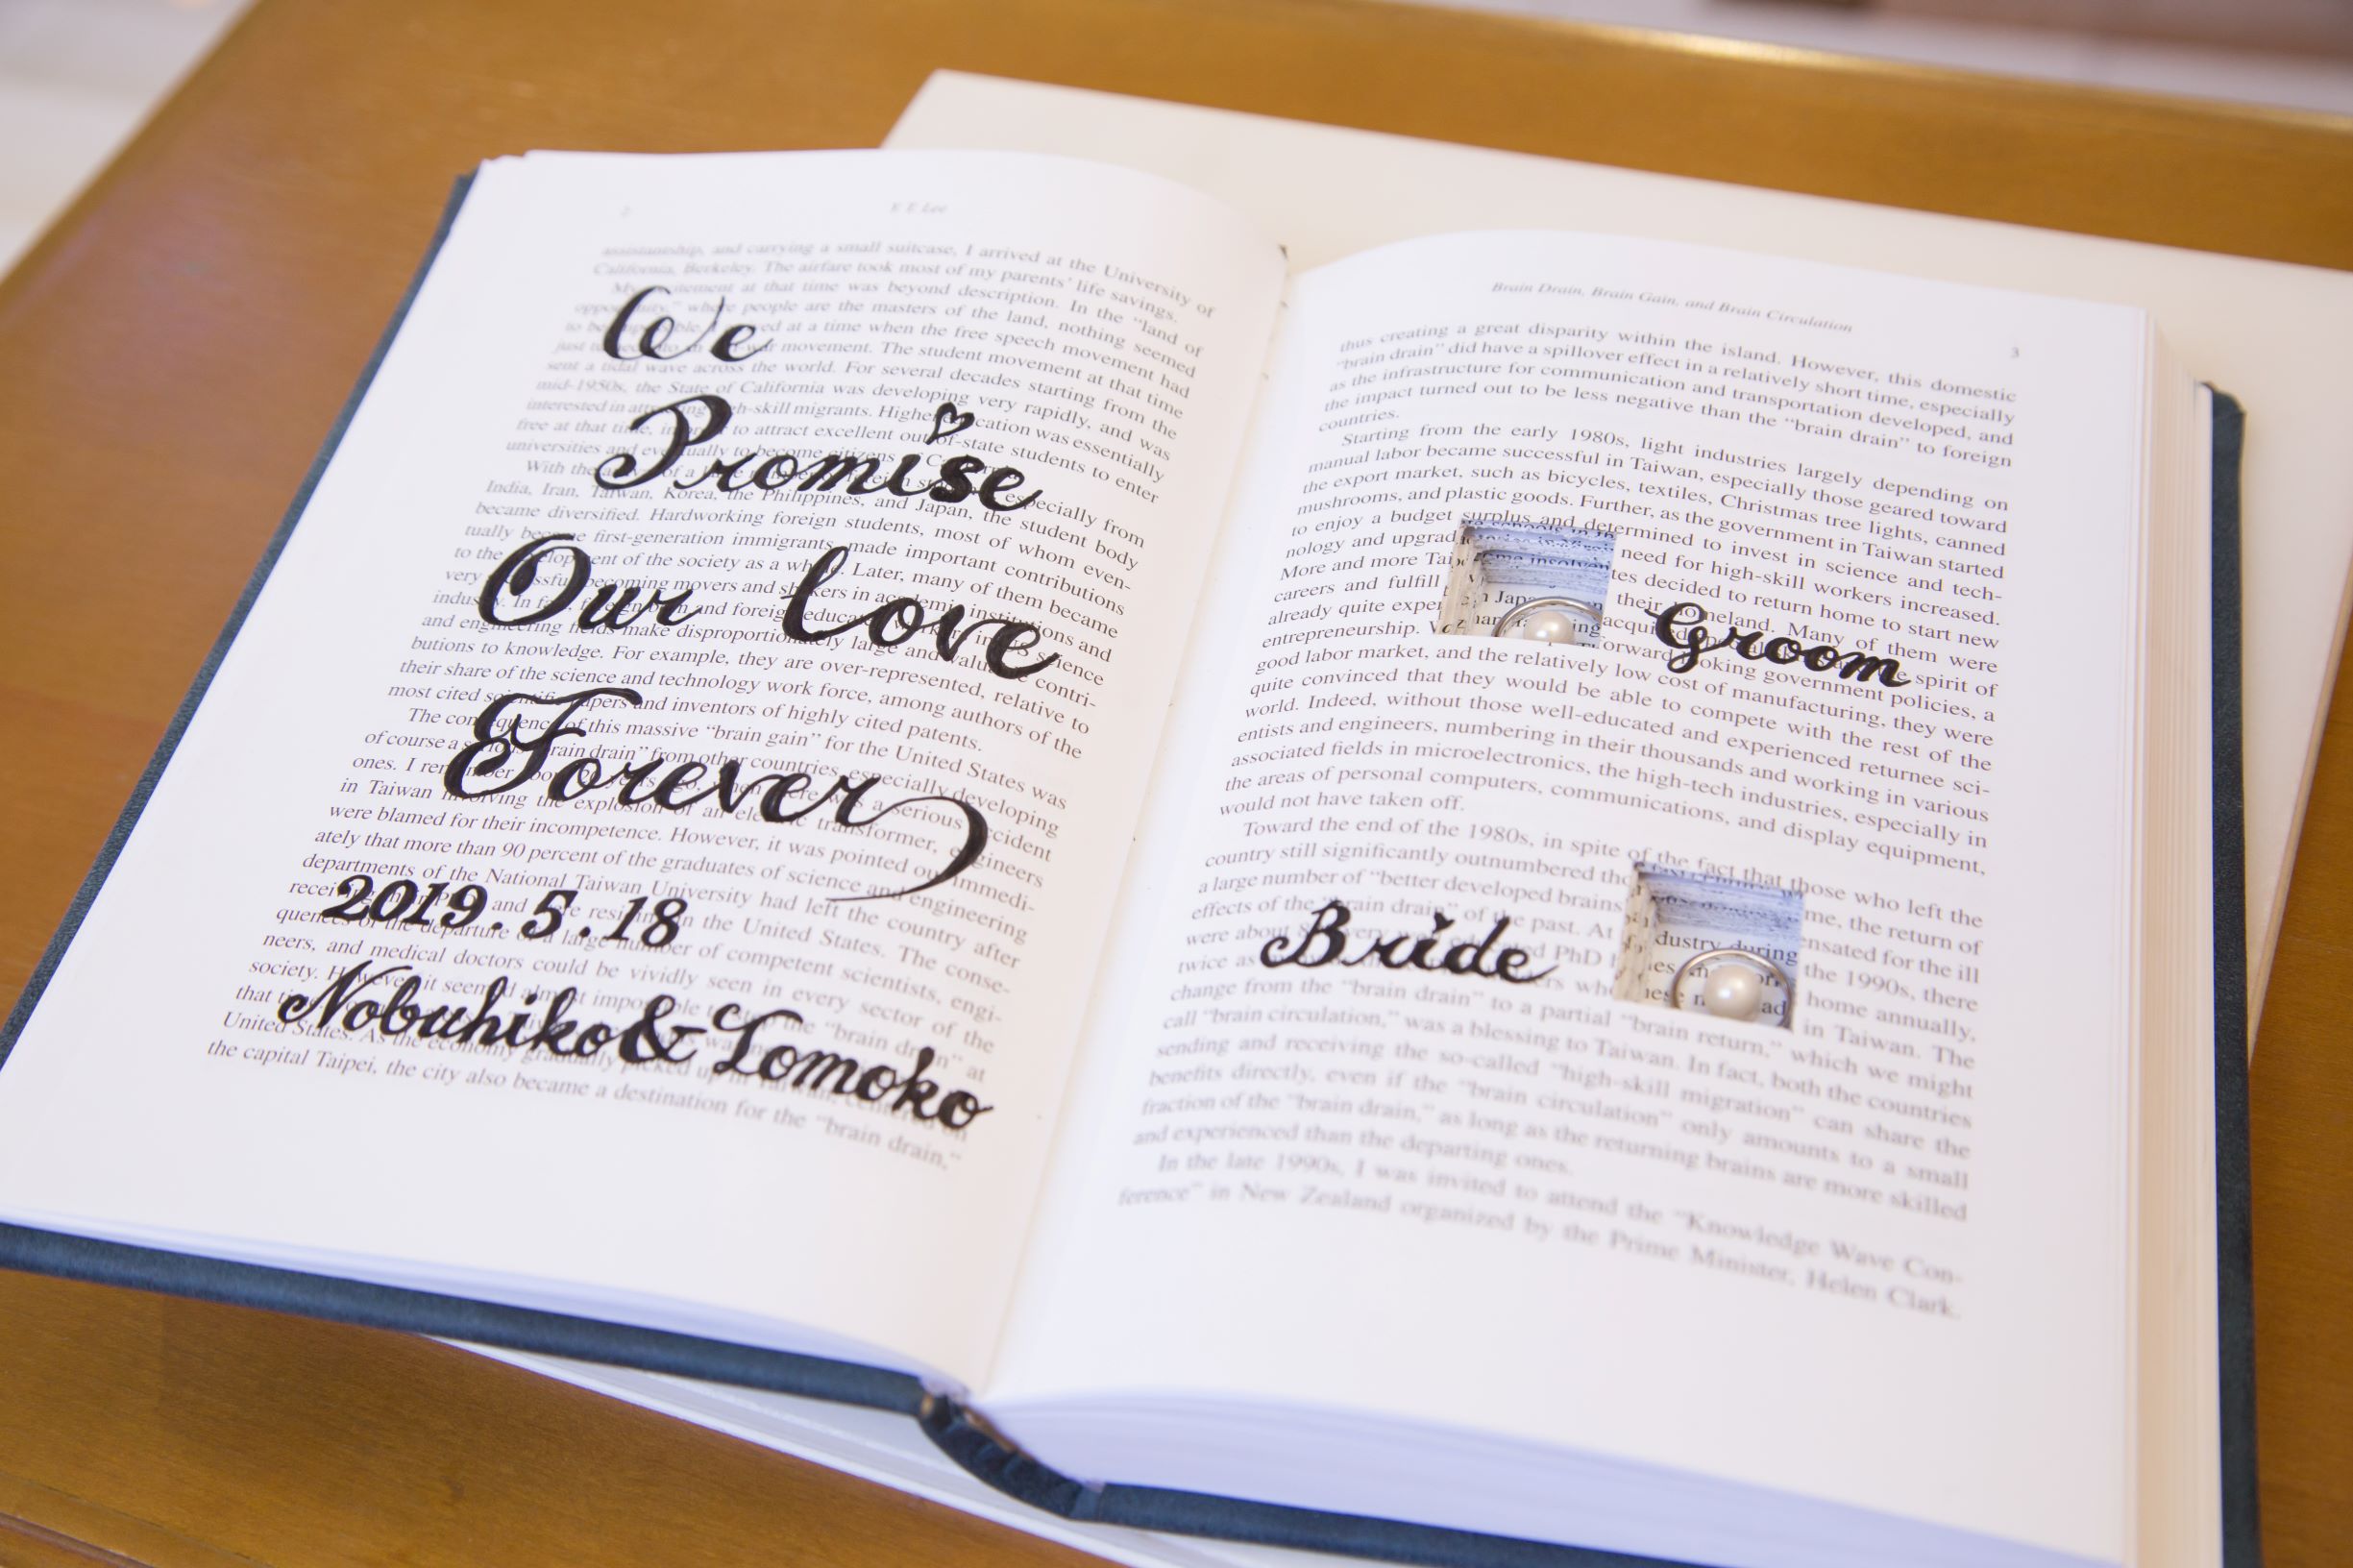 2
Y. T. Lee
assistantship, and carrying a small suitcase, I arrived at the University of
California, Berkeley. The airfare took most of my parents' life savings.
at that time was beyond description. In the "land of
where people are the masters of the land, nothing seemed
at a time when the free speech movement had
movement. The student movement at that time
sent a tidal wave across the world. For several decades starting from the
mid-1950s, the State of California was developing very rapidly, and was
interested in high-skill migrants. Higher education was essentially
free at that time, to attract excellent out-of-state students to enter
universities and eventually to become citizens of
With the of a especially from
India, Iran, Taiwan, Korea, the Philippines, and Japan, the student body
became diversified. Hardworking foreign students, most of whom even-
tually become first-generation immigrants, made important contributions
to the development of the society as a whole. Later, many of them became
very becoming movers and shakers in academic institutions and
and engineering fields make disproportionately large and contri-
butions to knowledge. For example, they are over-represented, relative to
their share of the science and technology work force, among authors of the
most cited scientific papers and inventors of highly cited patents.
The consequence of this massive "brain gain" for the United States was
of course a "brain drain" from other countries, especially developing
ones. I remember a serious accident
in Taiwan involving the explosion of an electric transformer, engineers
were blamed for their incompetence. However, it was pointed out immedi-
ately that more than 90 percent of the graduates of science and engineering
departments of the National Taiwan University had left the country after
and in the United States. The conse-
quences of the departure of a large number of competent scientists, engi-
neers, and medical doctors could be vividly seen in every sector of the
society. However, it seemed almost impossible to stop the "brain drain" at
that
United States. As the economy gradually picked up in
the capital Taipei, the city also became a destination for the "brain drain,"
We
Promise
Our Love
Forever
2019.5.18
Nobuhiko&Tomoko
Brain Drain, Brain Gain, and Brain Circulation
3
thus creating a great disparity within the island. However, this domestic
"brain drain" did have a spillover effect in a relatively short time, especially
as the infrastructure for communication and transportation developed, and
the impact turned out to be less negative than the "brain drain" to foreign
countries.
Starting from the early 1980s, light industries largely depending on
manual labor became successful in Taiwan, especially those geared toward
the export market, such as bicycles, textiles, Christmas tree lights, canned
mushrooms, and plastic goods. Further, as the government in Taiwan started
to enjoy a budget surplus and determined to invest in science and tech-
nology and need for high-skill workers increased.
More and more decided to return home to start new
careers and fulfill their homeland. Many of them were
already quite spirit of
entrepreneurship. forward looking government policies, a
good labor market, and the relatively low cost of manufacturing, they were
quite convinced that they would be able to compete with the rest of the
world. Indeed, without those well-educated and experienced returnee sci-
entists and engineers, numbering in their thousands and working in various
associated fields in microelectronics, the high-tech industries, especially in
the areas of personal computers, communications, and display equipment,
would not have taken off.
Toward the end of the 1980s, in spite of the fact that those who left the
country still significantly outnumbered the return of
a large number of "better developed brains for the ill
effects of the "brain drain" of the past. At the 1990s, there
were about PhD home annually,
twice as in Taiwan. The
change from the "brain drain" to a partial "brain return," which we might
call "brain circulation," was a blessing to Taiwan. In fact, both the countries
sending and receiving the so-called "high-skill migration" can share the
benefits directly, even if the "brain circulation" only amounts to a small
fraction of the "brain drain," as long as the returning brains are more skilled
and experienced than the departing ones.
In the late 1990s, I was invited to attend the "Knowledge Wave Con-
ference" in New Zealand organized by the Prime Minister, Helen Clark.
Groom
Bride